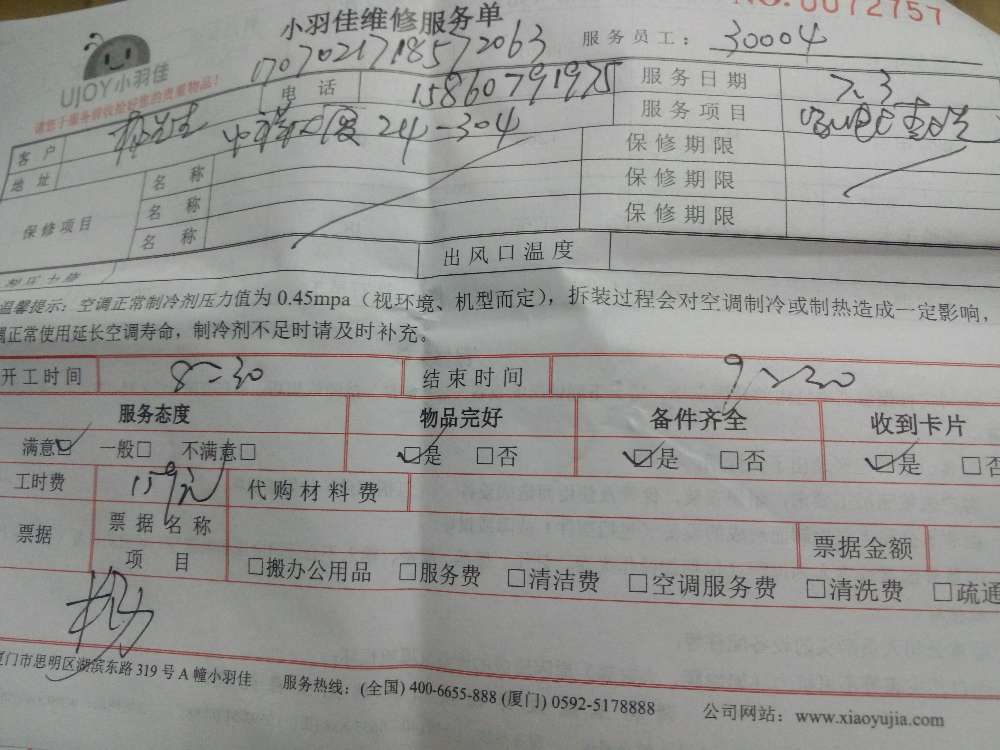 NO.0072757
小羽佳维修服务单
UJOY小羽佳
请您于服务前收拾好您的贵重物品！
1707021718572063
服务员工： 30004
客户 电话 15860791975 服务日期
地址 24-304 服务项目
保修项目 名称 保修期限
名称 保修期限
名称 保修期限
出风口温度
温馨提示：空调正常制冷剂压力值为 0.45mpa（视环境、机型而定），拆装过程会对空调制冷或制热造成一定影响，
正常使用延长空调寿命，制冷剂不足时请及时补充。
开工时间 8:30 结束时间 9:30
服务态度 物品完好 备件齐全 收到卡片
满意☑ 一般□ 不满意□ ☑是 □否 ☑是 □否 ☑是 □否
工时费 159元 代购材料费
票据 票据名称 票据金额
项目 □搬办公用品 □服务费 □清洁费 □空调服务费 □清洗费 □疏通
杨
厦门市思明区湖滨东路 319 号 A 幢小羽佳 服务热线：(全国) 400-6655-888 (厦门) 0592-5178888 公司网站：www.xiaoyujia.com